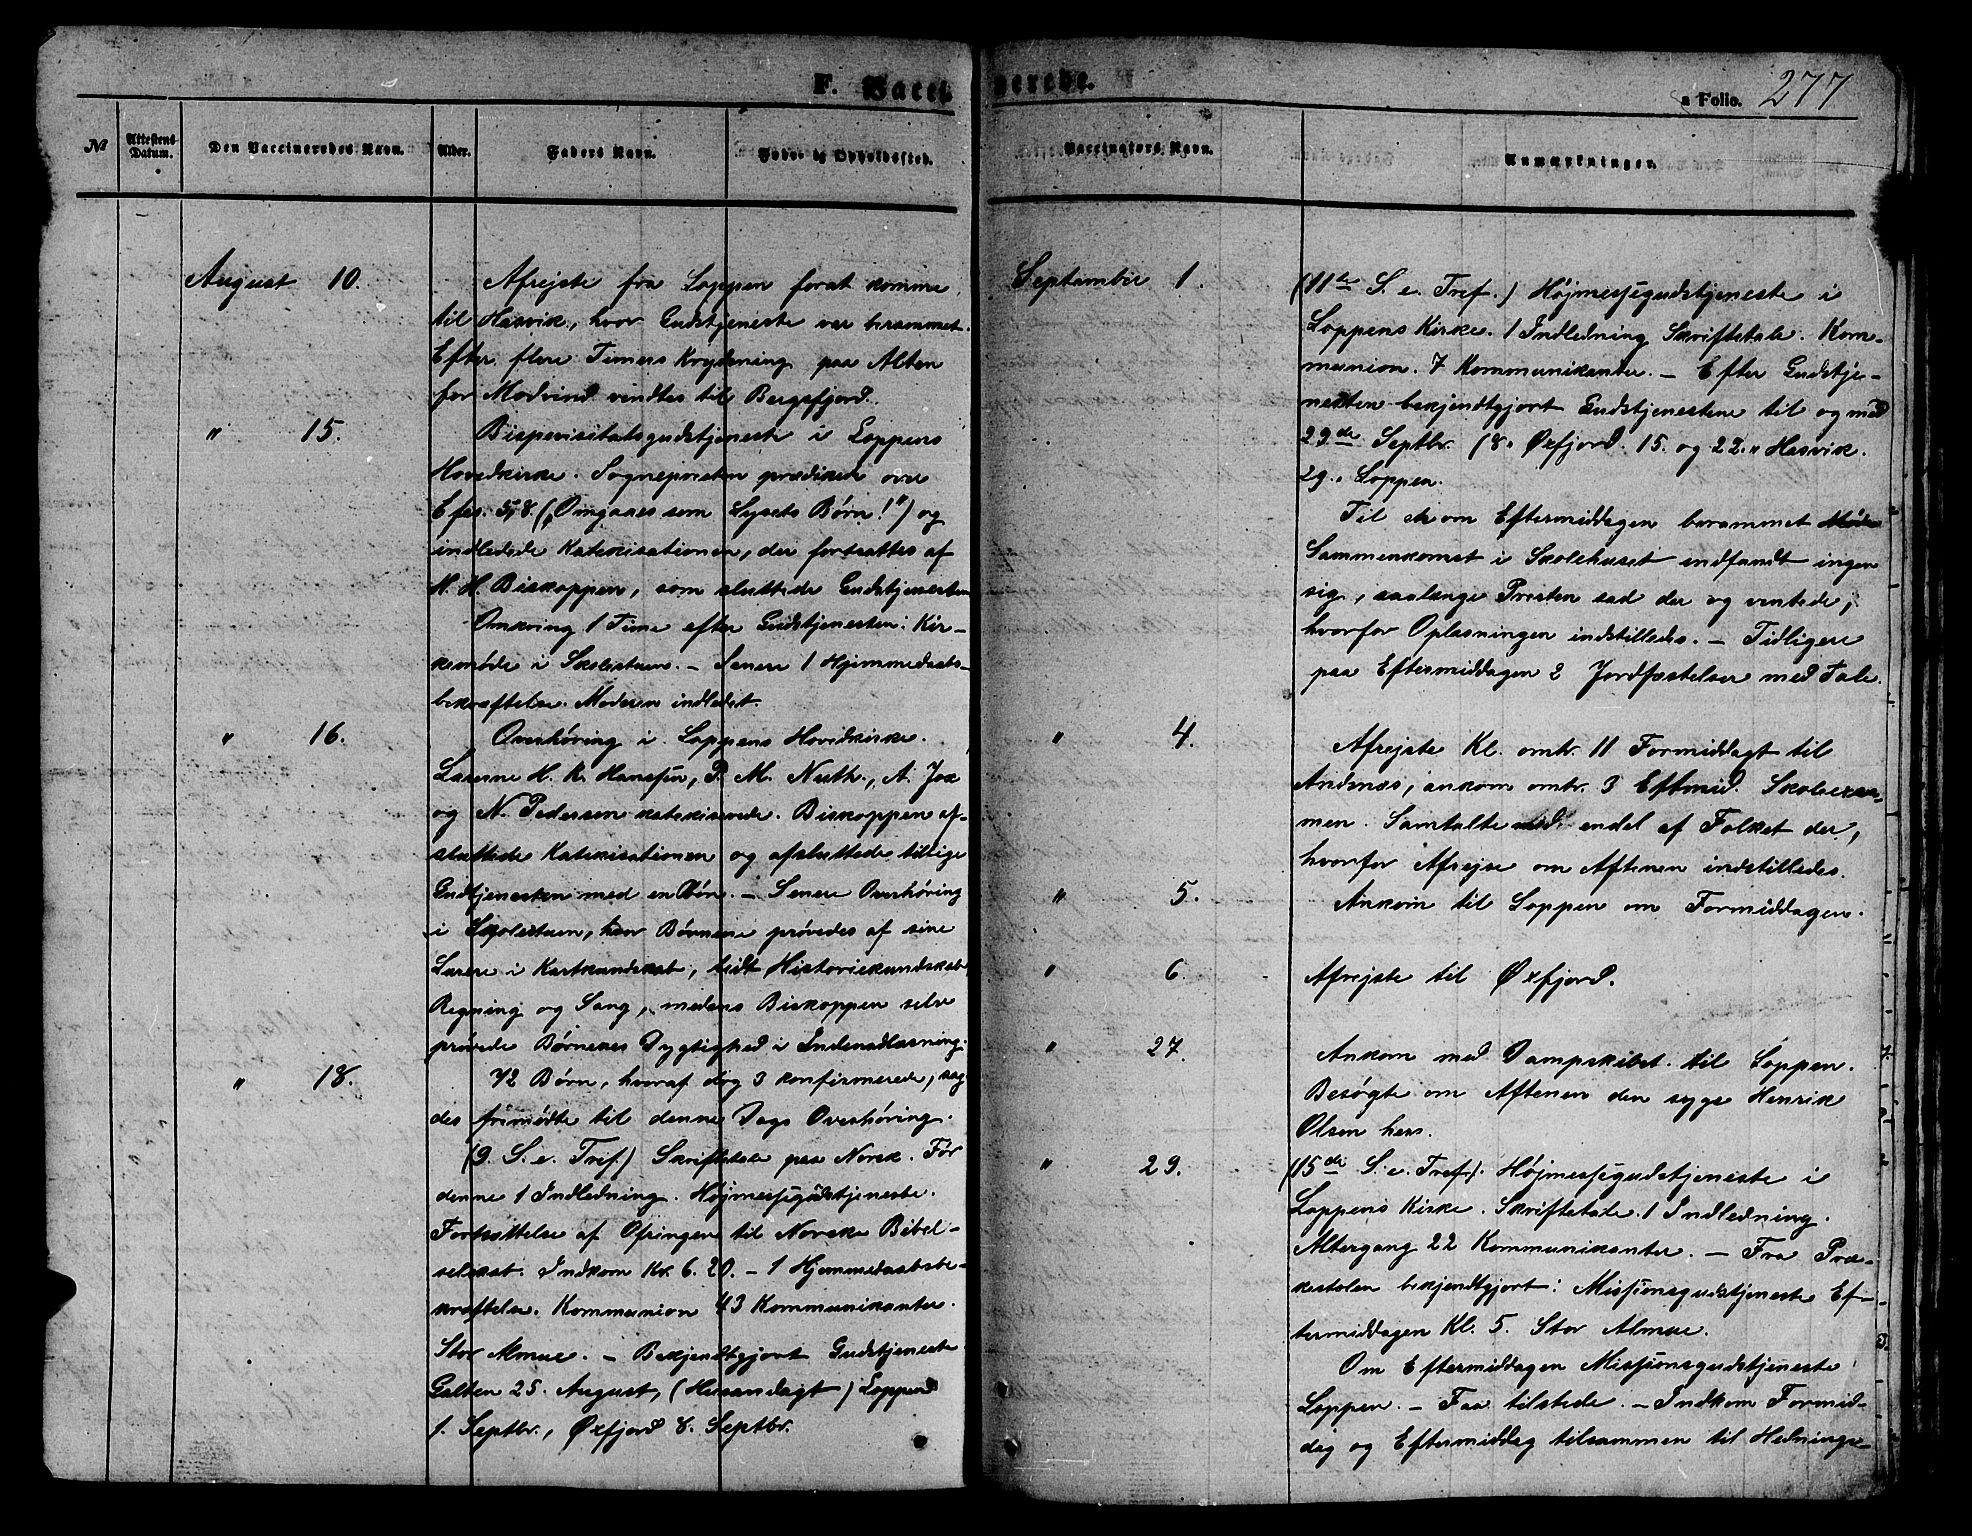 F. Vacci
nerede.
a Folio. 277
№
Attestens Datum.
Den Vaccineredes Navn.
Alder.
Faders Navn.
Føde- og Opholdssted.
Vaccinators Navn.
Anmærkninger.
August 10. Afrejste fra Loppen forat komme
til Hasvik, hvor Gudstjeneste var berammet.
Efter flere Timers Krydsning paa Alten
for Modvind vendtes til Bergsfjord.
" 15. Bispevisitatsgudstjeneste i Loppens
Hovedkirke. Sognepresten prædiken over
Efes. 5,8. („Omgaaes som Lysets Børn!") og
indledede Katekisationen, der fortsattes af
H. H. Biskoppen, som sluttede Gudstjenesten
Omkring 1 Time efter Gudstjenesten: Kir-
kemøde i Skolestuen. – Senere 1 Hjemmedaabs-
bekræftelse. Moderen indledet.
" 16. Overhøring i Loppens Hovedkirke.
Lærerne H. K. Hanssen, P. M. Nuth, A. Jox
og N. Pedersen katekiserede. Biskoppen af-
sluttede Katekisationen og afsluttede tillige
Gudtjenesten med en Bøn. – Senere Overhøring
i Skolestuen, hvor Børnene prøvedes af sine
Lærere i Kartkundskab, tidt Historiekundskab
Regning og Sang, medens Biskoppen selv
prøvede Børnenes Dygtighed i Indenadlæsning.
" 18. 72 Børn, hvoraf dog 3 konfirmerede, sag-
des fremmødte til denne Dags Overhøring.
(9. S. e. Tref.) Skriftetale paa Norsk. Før
denne 1 Indledning. Højmessegudstjeneste.
Fortsættelse af Ofringen til Norske Bibel-
selskab. Indkom Kr. 6.20. – 1 Hjemmedaabsbe-
kræftelse. Kommunion 43 Kommunikanter.
Stor Almue. – Bekjendtgjort Gudstjeneste
Galten 25. August, (Husandagt) Loppen
1. Septbr., Øxfjord 8. Septbr.
September 1. (11te S. e. Tref.) Højmessegudstjeneste i
Loppens Kirke. 1 Indledning Skriftetale. Kom-
munion. 7 Kommunikanter. – Efter Gudstje-
nesten bekjendtgjort Gudstjenestene til og med
29de Septbr. (8. Øxfjord. 15. og 22. " Hasvik.
29. " Loppen.
Til om Eftermiddagen berammet
Sammenkomst i Skolehuset indfandt ingen
sig, saalænge Presten sad der og ventede,
hvorfor Oplæsningen indstilledes. – Tidligere
paa Eftermiddagen 2 Jordfæstelser med Tale.
" 4. Afrejste Kl. omtr. 11 Formiddagt til
Andnæs, ankom omtr. 3 Eftmid. Skoleexa-
men. Samtalte med endel af Folket der,
hvorfor Afrejse om Aftenen indstilledes.
" 5. Ankom til Loppen om Formiddagen.
" 6. Afrejste til Øxfjord.
" 27. Ankom med Dampskibet til Loppen.
Besøgte om Aftenen den syge Henrik
Olsen hers.
" 29. (15de S. e. Tref.) Højmessegudstjeneste i
Loppens Kirke. Skriftetale. 1 Indledning.
Altergang 22 Kommunikanter. – Fra Præ-
kestolen bekjendtgjort: Missionsgudstjeneste Ef-
termiddagen Kl. 5. Stor Almue.
Om Eftermiddagen Missionsgudstjeneste
Loppen. – Faa tilstede. – Indkom Formid-
dag og Eftermiddag tilsammen til Hednings-